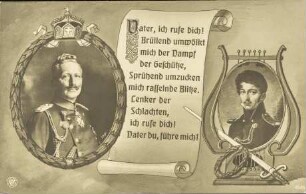 Vater, ich rufe dich!
Brüllend umwölkt
mich der Dampf
der Geschütze,
Sprühend umzucken
mich rasselnde Blitze.
Lenker der
Schlachten,
ich rufe dich!
Vater du, führe mich!